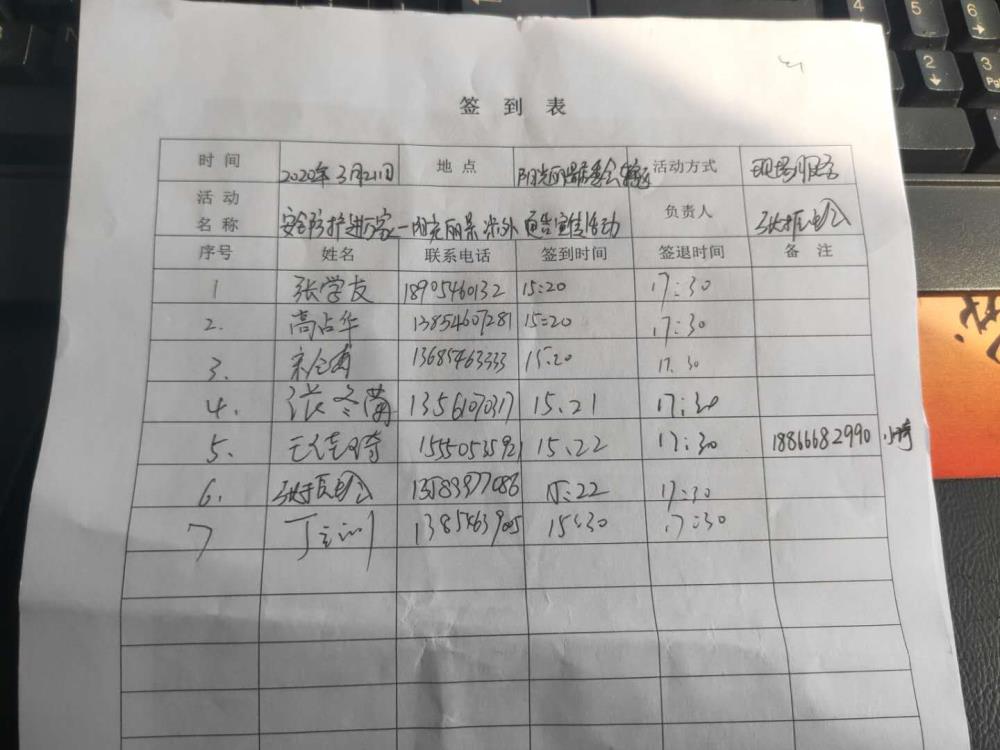 签 到 表
时 间 2020年3月21日 地 点 阳光丽景居委会辖区 活动方式 现场服务
活 动 名 称 安全防护进万家—阳光丽景 户外 宣传活动 负责人
序号 姓名 联系电话 签到时间 签退时间 备 注
1 张学友 18905460132 15:20 17:30
2. 高占华 13854607281 15:20 17:30
3. 13685463333 15:20 17:30
4. 张冬菊 13561070317 15:21 17:30
5. 15550535921 15:22 17:30 18866682990 小琦
6. 13589977086 15:22 17:30
7 丁训 13854639005 15:30 17:30